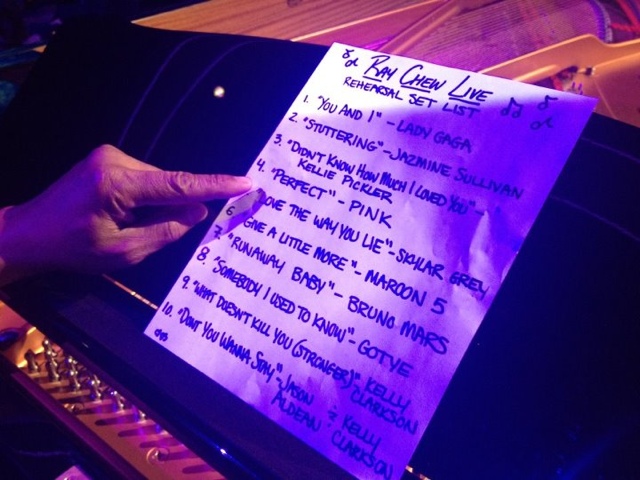 RAY CHEW LIVE
REHEARSAL SET LIST
1. "YOU AND I" - LADY GAGA
2. "STUTTERING" - JAZMINE SULLIVAN
3. "DIDN'T KNOW HOW MUCH I LOVED YOU" -
KELLIE PICKLER
4. "PERFECT" - PINK
LOVE THE WAY YOU LIE" - SKYLAR GREY
6 GIVE A LITTLE MORE" - MAROON 5
7. "RUNAWAY BABY" - BRUNO MARS
8. "SOMEBODY I USED TO KNOW" - GOTYE
9. "WHAT DOESN'T KILL YOU (STRONGER)" - KELLY
CLARKSON
10. "DON'T YOU WANNA STAY" - JASON
ALDEAN & KELLY
CLARKSON